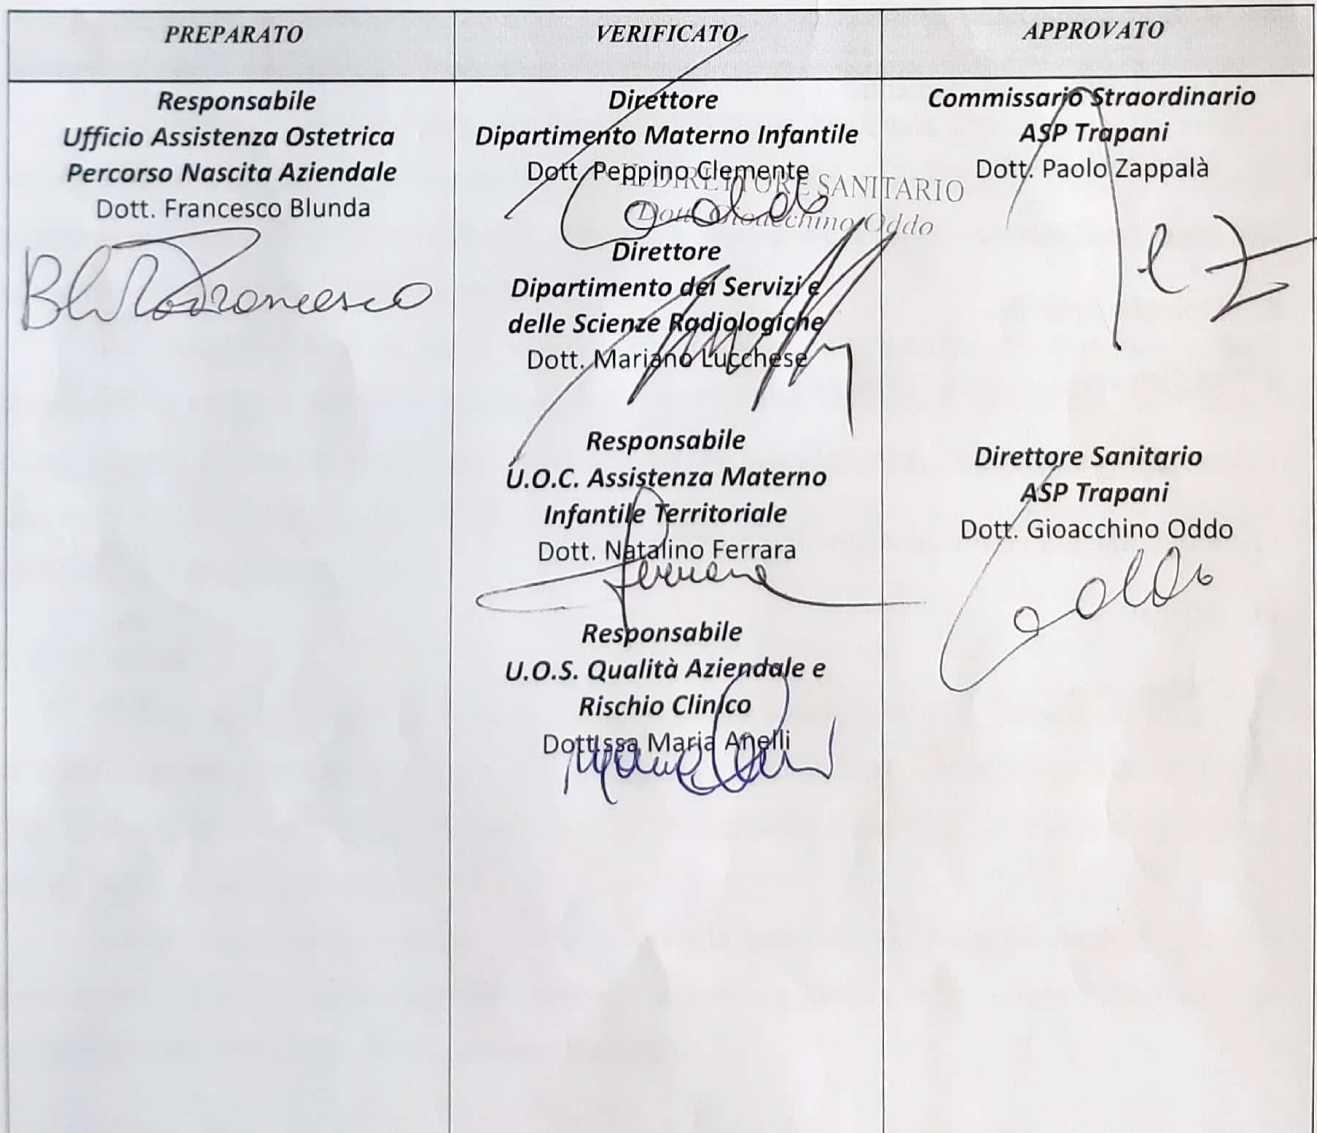 PREPARATO
Responsabile
Ufficio Assistenza Ostetrica
Percorso Nascita Aziendale
Dott. Francesco Blunda
VERIFICATO
Direttore
Dipartimento Materno Infantile
Dott. Peppino Clemente
IL DIRETTORE SANITARIO
Dott. Gioacchino Oddo
Direttore
Dipartimento dei Servizi e
delle Scienze Radiologiche
Dott. Mariano Lucchese
Responsabile
U.O.C. Assistenza Materno
Infantile Territoriale
Dott. Natalino Ferrara
Responsabile
U.O.S. Qualità Aziendale e
Rischio Clinico
Dott.ssa Maria Anelli
APPROVATO
Commissario Straordinario
ASP Trapani
Dott. Paolo Zappalà
Direttore Sanitario
ASP Trapani
Dott. Gioacchino Oddo